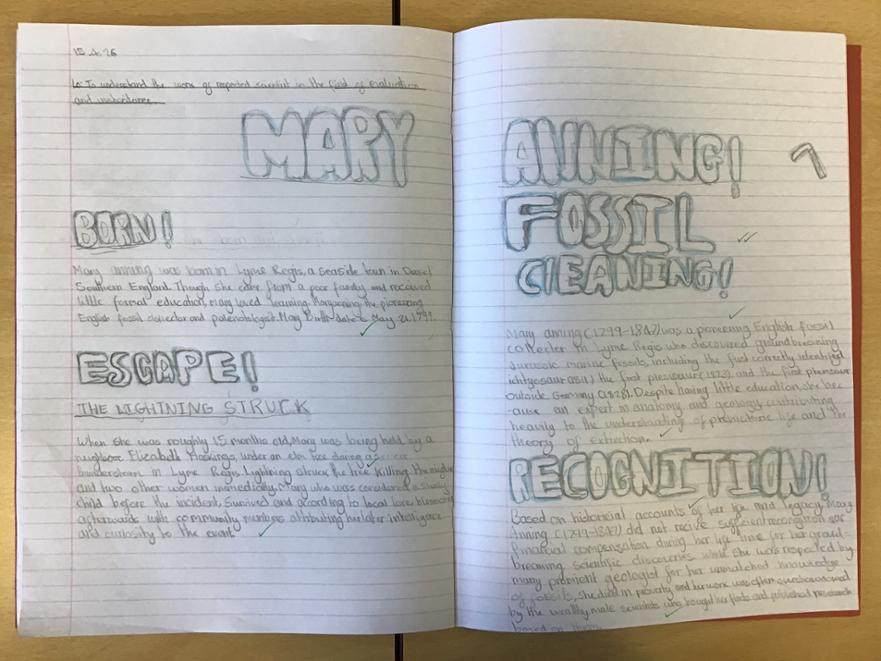 15
Lo: To understand the work of repected scientist in the field of evaluation
and
MARY
BORN!
Mary anning was born in Lyme Regis, a seaside town in Dorset
Southern England. Though she came from a poor family and received
little formal education, Mary loved learning. the pioneering
English fossil collector and Mary Birth date is May 21.1799.
ESCAPE!
THE LIGHTNING STRUCK
When she was roughly 15 months old, Mary was being held by a
neighbore Elizabeth Haskings, under an elm tree during a
in Lyme Regis. Lightning struck the tree killing the
and two other women immediately. Mary who was considered a
child before the incident, Survived and according to local lore,
afterwards with community attributing her later
and curiosity to the event.
ANNING!
7
FOSSIL
CLEANING!
Mary anning (1799-1847) was a pioneering English Fossil
collecter in Lyme Regis who discovered
Jurassic marine fossils, including the first correctly identified
the first plesiosaur (1823), and the first
outside Germany (1828). Despite having little education, she bec
-ame an expert in anatomy and geology, contributing
heavily to the understanding of prehistoric life and the
theory of extinction.
RECOGNITION!
Based on historicial accounts of her life and legacy, Mary
Anning (1799-1847) did not recive sufficient recognition or
financial compensation during her life time for her
scientific discoveris. while she was respected by
many geologist for her unmatched knowledge
of fossils, she died in poverty and her work was often
by the wealthy, male scientists who bought her finds and published research
based on them.